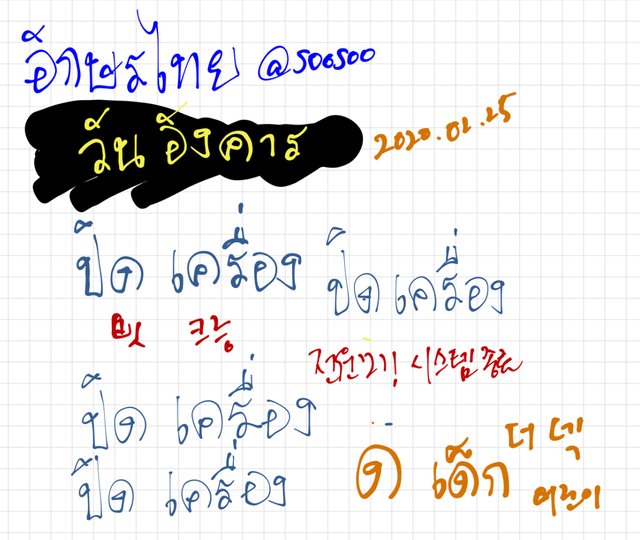 อักษรไทย @soosoo
วันอังคาร 2020.02.25
ปิด เครื่อง ปิด เครื่อง
삗 크르엉
전원끄기! 시스템종료
ปิด เครื่อง
ปิด เครื่อง
ด เด็ก
어린이